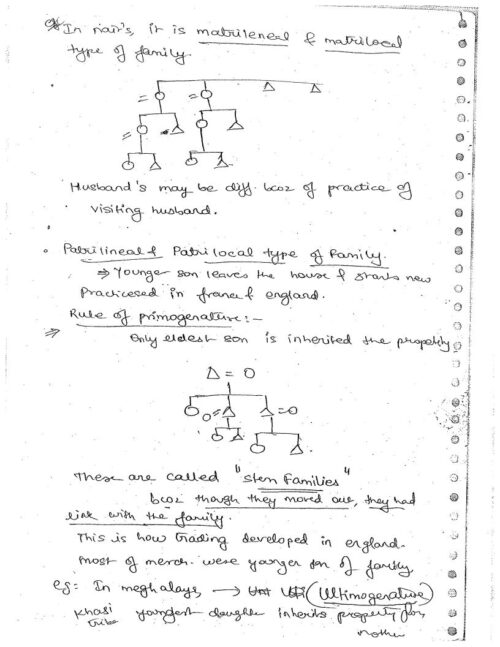 In nair's, it is matrileneal & matrilocal
type of family.
Husband's may be diff. bcoz of practice of
visiting husband.
Patrilineal & Patrilocal type of Family.
⇒ Younger son leaves the house & starts new
Practicesed in france & england.
Rule of primogenature:-
⇒ Only eldest son is inherited the property
Δ = O
O = Δ Δ = O
These are called "stem Families"
bcoz though they moved out, they had
link with the family.
This is how trading developed in england.
most of merch. were younger son of family.
eg: In meghalaya, → (Ultimogenature)
Khasi youngest daughter inherits property from
tribe mother